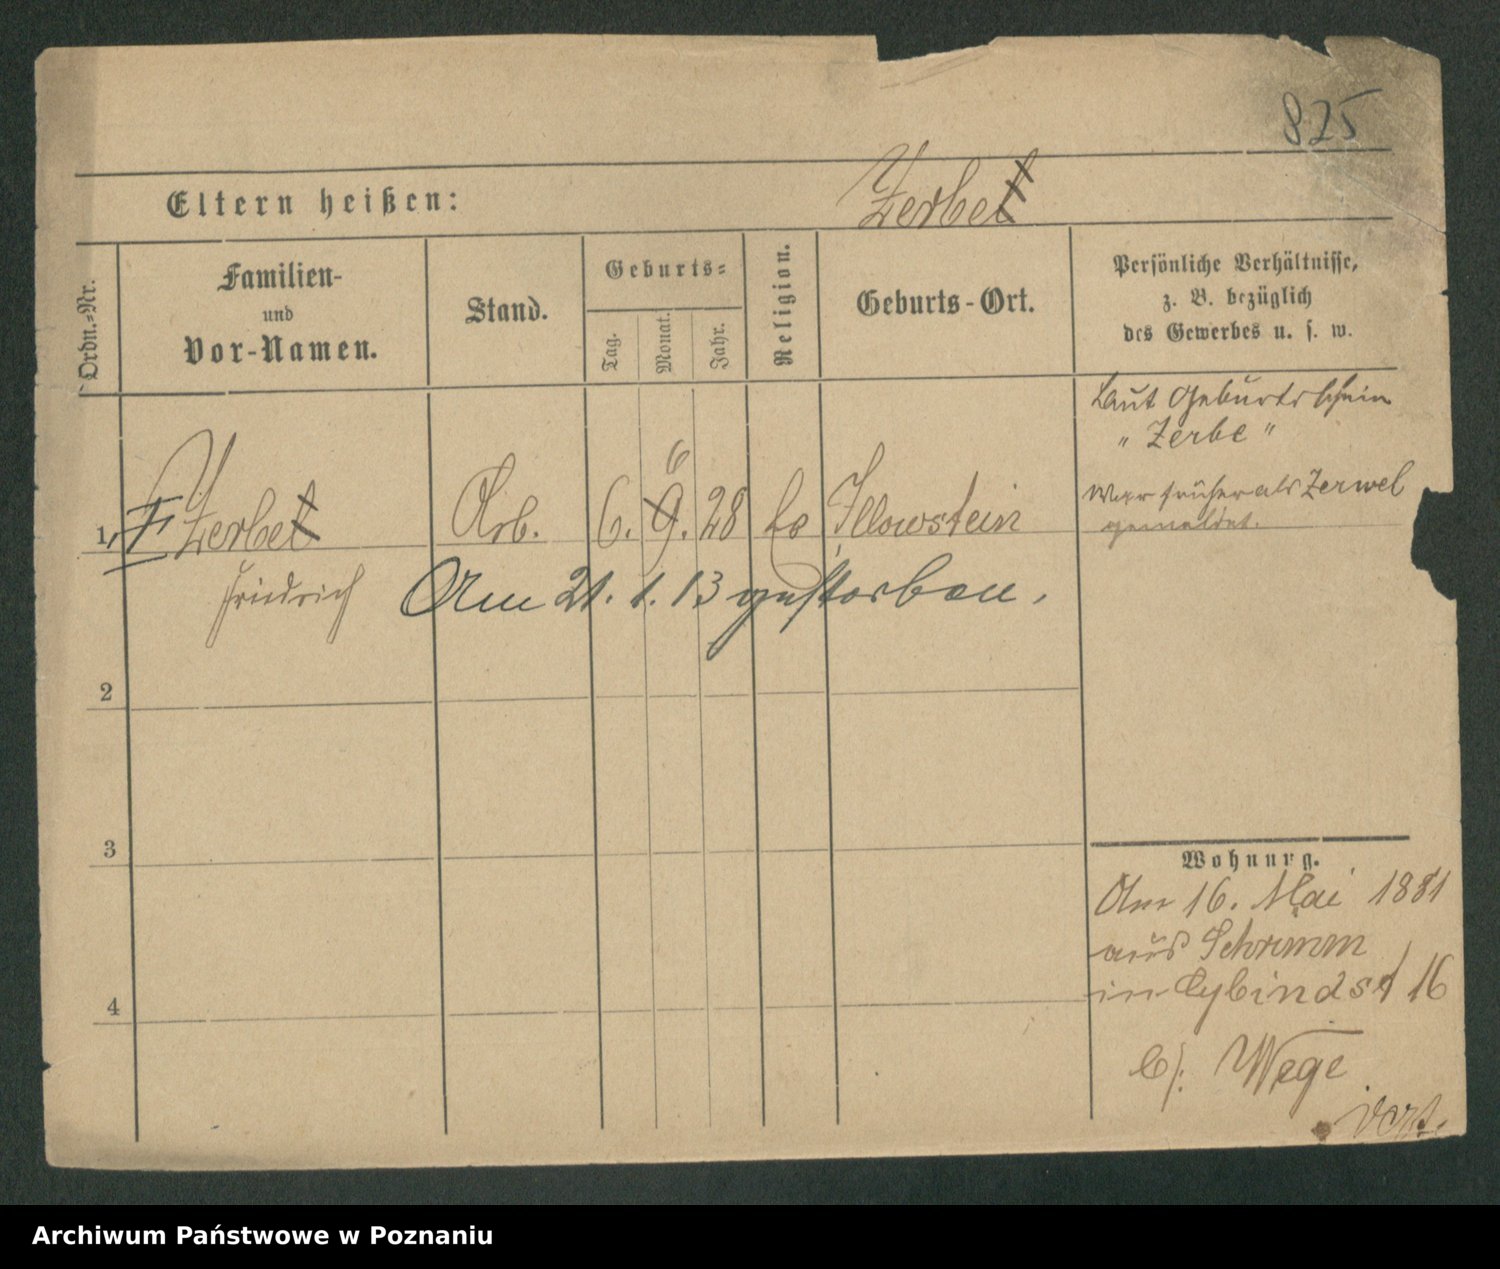 825
Eltern heißen:
Zerbet
Ordn.-Nr.
Familien-
und
Vor-Namen.
Stand.
Geburts-
Tag.
Monat.
Jahr.
Religion.
Geburts-Ort.
Persönliche Verhältnisse,
z. B. bezüglich
des Gewerbes u. s. w.
Laut Geburtsschein
„ Zerbe "
War früher als Zerwel
gemeldet.
6
1, Zerbet Arb. 6. 9. 28 Illowstein
Friedrich Am 21. 1. 13 gestorben.
2
3
4
Wohnung.
Am 16. Mai 1881
aus Schrimm
in Cybindst 16
b/. Wege
vert.
Archiwum Państwowe w Poznaniu